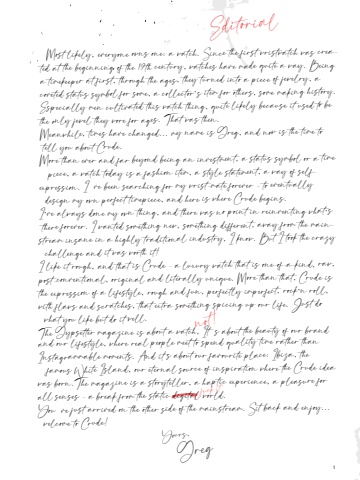 Editorial
Most likely, everyone owns one: a watch. Since the first wristwatch was crea-
ted at the beginning of the 19th century, watches have made quite a way. Being
a timekeeper at first, through the ages, they turned into a piece of jewelry, a
coveted status symbol for some, a collector's item for others, some making history.
Especially men cultivated this watch thing, quite likely because it used to be
the only jewel they wore for ages. That was then.
Meanwhile, times have changed... my name is Greg, and now is the time to
tell you about Crude.
More than ever and far beyond being an investment, a status symbol or a time
piece, a watch today is a fashion item, a style statement, a way of self-
expression. I've been searching for my wrist mate forever - to eventually
design my own perfect timepiece, and here is where Crude begins.
I've always done my own thing, and there was no point in reinventing what's
there forever. I wanted something new, something different, away from the main-
stream insane in a highly traditional industry, I know. But I took the crazy
challenge and it was worth it!
I like it rough, and that is Crude - a luxury watch that is one of a kind, raw,
postconventional, original and literally unique. More than that, Crude is
the expression of a lifestyle, rough and fun, perfectly imperfect, rock'n roll,
with flaws and scratches, that extra something spicing up our life. Just do
what you like but do it well.
not!
The Gypsetter magazine is about a watch. It's about the beauty of our brand
and our lifestyle, where real people meet to spend quality time rather than
Instagrammable moments. And it's about our favourite place: Ibiza, the
famous White Island, our eternal source of inspiration where the Crude idea
was born. The magazine is a storyteller, a haptic experience, a pleasure for
all senses - a break from the static digital world.
You've just arrived on the other side of the mainstream. Sit back and enjoy...
welcome to Crude!
Yours,
Greg
1